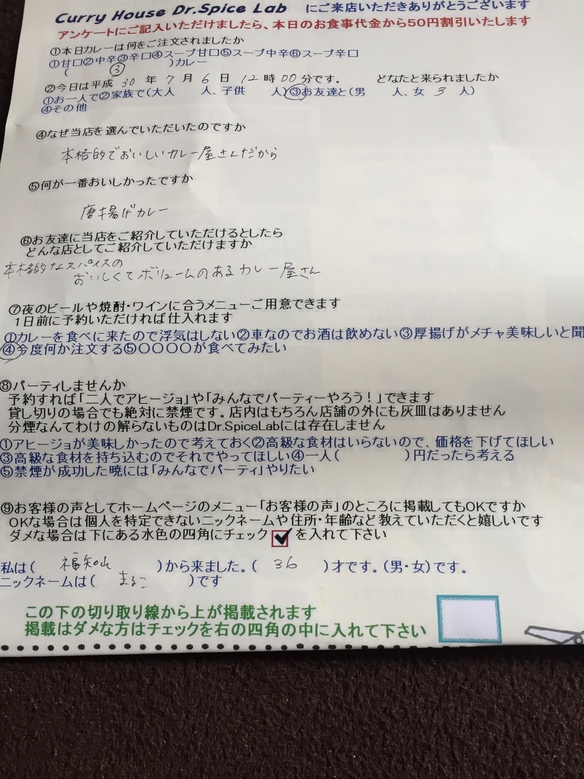 Curry House Dr.Spice Lab にご来店いただきありがとうございます
アンケートにご記入いただけましたら、本日のお食事代金から50円割引いたします
①本日カレーは何をご注文されましたか
①甘口②中辛③辛口④スープ甘口⑤スープ中辛⑥スープ辛口
( ③ )カレー
②今日は平成 30 年 7 月 6 日 12 時 00 分です。 どなたと来られましたか
①お一人で②ご家族で(大人 人、子供 人)③お友達と(男 人、女 3 人)
④その他
④なぜ当店を選んでいただいたのですか
本格的でおいしいカレー屋さんだから
⑤何が一番おいしかったですか
唐揚げカレー
⑥お友達に当店をご紹介していただけるとしたら
どんな店としてご紹介していただけますか
本格的なスパイスの
おいしくてボリュームのあるカレー屋さん
⑦夜のビールや焼酎・ワインに合うメニューご用意できます
1日前に予約いただければ仕入れます
①カレーを食べに来たので浮気はしない②車なのでお酒は飲めない③厚揚げがメチャ美味しいと聞
④今度何か注文する⑤〇〇〇〇が食べてみたい
⑧パーティしませんか
予約すれば「二人でアヒージョ」や「みんなでパーティーやろう!」できます
貸し切りの場合でも絶対に禁煙です。店内はもちろん店舗の外にも灰皿はありません
分煙なんてわけの解らないものはDr.SpiceLabには存在しません
①アヒージョが美味しかったので考えておく②高級な食材はいらないので、価格を下げてほしい
③高級な食材を持ち込むのでそれでやってほしい④一人( )円だったら考える
⑤禁煙が成功した暁には「みんなでパーティ」やりたい
⑨お客様の声としてホームページのメニュー「お客様の声」のところに掲載してもOKですか
OKな場合は個人を特定できないニックネームや住所・年齢など教えていただくと嬉しいです
ダメな場合は下にある水色の四角にチェック を入れて下さい
私は( 福知山 )から来ました。( 36 )才です。(男・女)です。
ニックネームは( まるこ )です
この下の切り取り線から上が掲載されます
掲載はダメな方はチェックを右の四角の中に入れて下さい